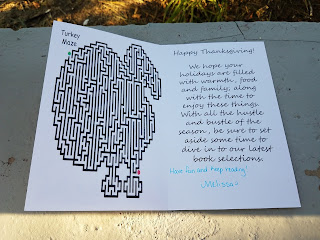 Turkey
Maze
Happy Thanksgiving!
We hope your
holidays are filled
with warmth, food
and family, along
with the time to
enjoy these things.
With all the hustle
and bustle of the
season, be sure to set
aside some time to
dive in to our latest
book selections.
Have fun and keep reading!
Melissa